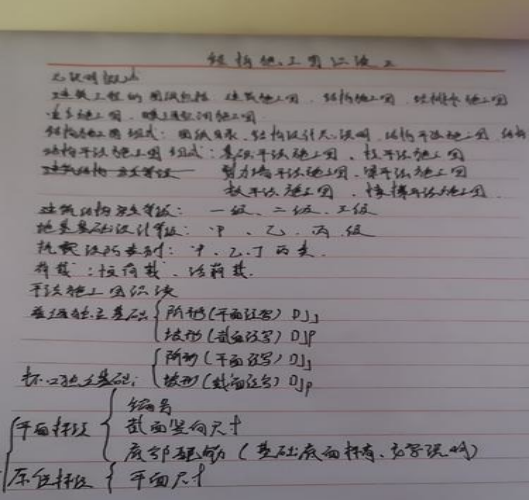 结构施工图识读
总说明概述
建筑工程的图纸包括 建筑施工图、结构施工图、给排水施工图
结构施工图组成：图纸目录、结构设计总说明、结构平法施工图
结构平法施工图组成：基础平法施工图、柱平法施工图
建筑结构安全等级 剪力墙平法施工图、梁平法施工图
板平法施工图、楼梯平法施工图
建筑结构安全等级：一级、二级、三级
地基基础设计等级：甲、乙、丙级
抗震设防类别：甲、乙、丁丙类.
荷载：恒荷载、活荷载.
平法施工图识读
普通独立基础 { 阶形(平面注写) DJJ
坡形(截面注写) DJP
阶形(平面注写) DJJ
杯口独立基础： { 坡形(截面注写) DJP
编号
平面标注 { 截面竖向尺寸
底部配筋 (基础底面标高、文字说明)
原位标注 { 平面尺寸